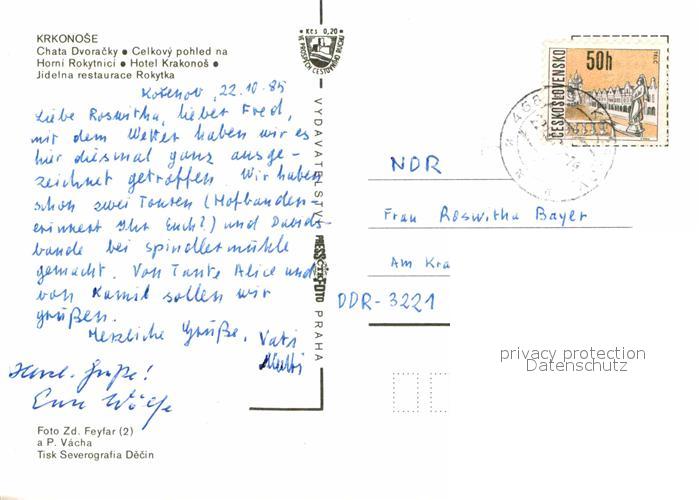 KRKONOŠE
Chata Dvoračky ● Celkový pohled na
Horní Rokytnici ● Hotel Krakonoš ●
Jídelna restaurace Rokytka
Kořenov, 22.10.85
Liebe Roswitha, lieber Fred,
mit dem Wetter haben wir es
hier diesmal ganz ausge-
zeichnet getroffen. Wir haben
schon zwei Touren (Hofbauden-
erinnert Ihr Euch?) und Davids-
baude bei Spindlermühle
gemacht. Von Tante Alice und
von Kamil sollen wir
grüßen.
Herzliche Grüße, Vati
Mutti
Herzl. Grüße!
Foto Zd. Feyfar (2)
a P. Vácha
Tisk Severografia Děčín
Kčs 0,20
VE PROSPĚCH CESTOVNÍHO RUCHU
VYDAVATELSTVÍ
PRESSFOTO
PRAHA
50h
ČESKOSLOVENSKO
TELČ
468
NDR
Frau Roswitha Bayer
Am Kra
DDR-3221
privacy protection
Datenschutz